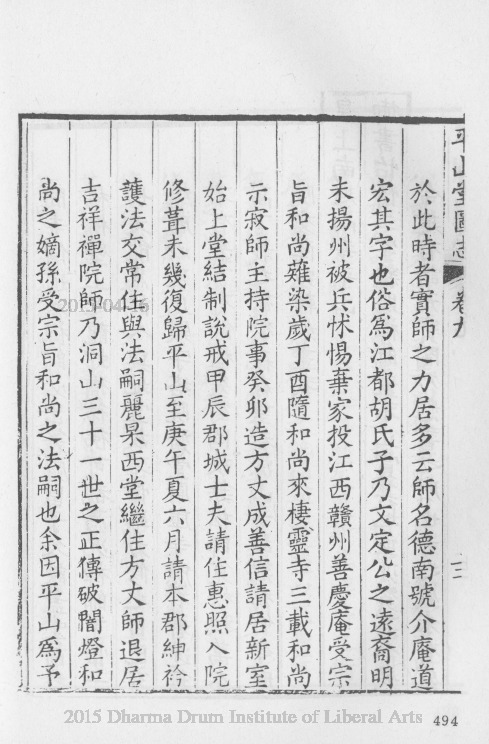 平山堂圖志 卷九
於此時者實師之力居多云師名德南號介庵道
宏其字也俗為江都胡氏子乃文定公之遠裔明
末揚州被兵怵惕棄家投江西贛州善慶庵受宗
旨和尚薙染歲丁酉隨和尚來棲靈寺三載和尚
示寂師主持院事癸卯造方丈成善信請居新室
始上堂結制說戒甲辰郡城士夫請住惠照入院
修葺未幾復歸平山至庚午夏六月請本郡紳衿
護法交常住與法嗣麗杲西堂繼住方丈師退居
吉祥禪院師乃洞山三十一世之正傳破闇燈和
尚之嫡孫受宗旨和尚之法嗣也余因平山為予
2015 Dharma Drum Institute of Liberal Arts
494